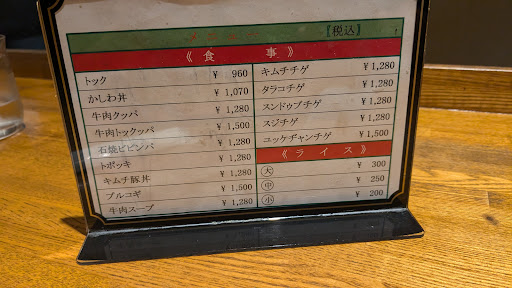 メニュー 【税込】
《 食 事 》
トック ¥ 960
かしわ丼 ¥ 1,070
牛肉クッパ ¥ 1,280
牛肉トックッパ ¥ 1,500
石焼ビビンバ ¥ 1,280
トポッキ ¥ 1,280
キムチ豚丼 ¥ 1,280
プルコギ ¥ 1,500
牛肉スープ ¥ 1,280
キムチチゲ ¥ 1,280
タラコチゲ ¥ 1,280
スンドゥブチゲ ¥ 1,280
スジチゲ ¥ 1,280
ユッケヂャンチゲ ¥ 1,500
《 ライス 》
大 ¥ 300
中 ¥ 250
小 ¥ 200